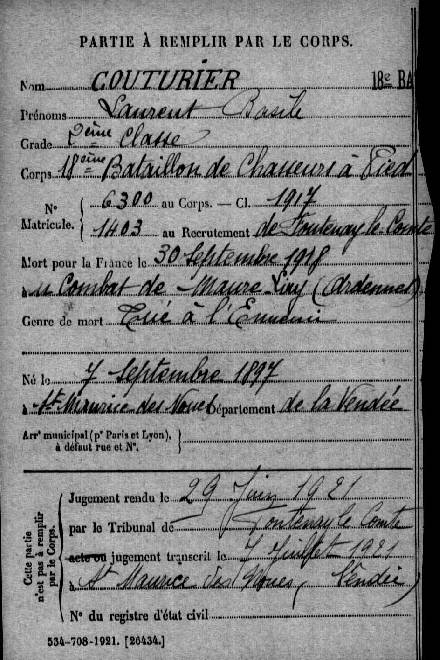 PARTIE À REMPLIR PAR LE CORPS.
Nom COUTURIER 18e BA
Prénoms Laurent Basile
Grade 2ème Classe
Corps 18ème Bataillon de Chasseurs à Pied
N° Matricule. { 6300 au Corps. — Cl. 1917
1403 au Recrutement de Fontenay le Comte
Mort pour la France le 30 Septembre 1918
au Combat de Maure Liry (Ardennes)
Genre de mort Tué à l'Ennemi
Né le 7 Septembre 1897
à St Maurice des Noues Département de la Vendée
Arrt municipal (pr Paris et Lyon), à défaut rue et N°. }
Cette partie n'est pas à remplir par le Corps.
Jugement rendu le 29 Juin 1921
par le Tribunal de Fontenay le Comte
acte ou jugement transcrit le 7 Juillet 1921
à St Maurice des Noues, Vendée)
N° du registre d'état civil
534-708-1921. [26434.]